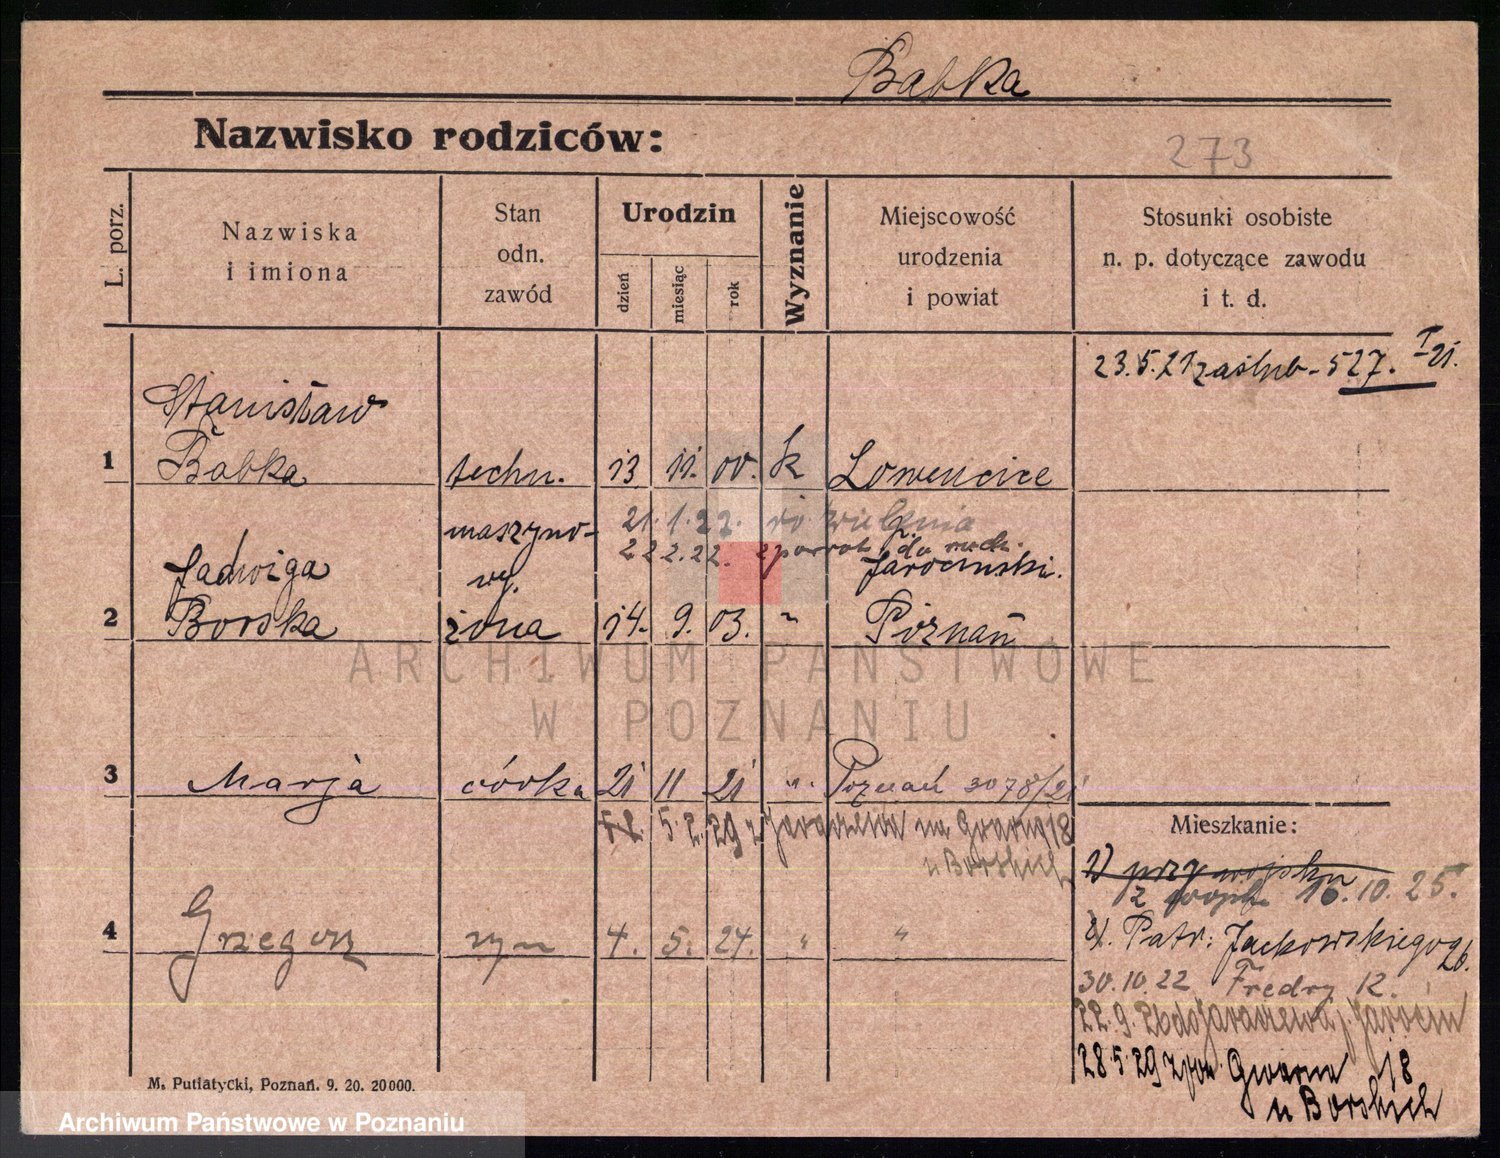 Babka
Nazwisko rodziców:
273
L. porz.
Nazwiska
i imiona
Stan
odn.
zawód
Urodzin
dzień
miesiąc
rok
Wyznanie
Miejscowość
urodzenia
i powiat
Stosunki osobiste
n. p. dotyczące zawodu
i t. d.
23.5.21 zaślub - 527. I 21.
Stanisław
1 Babka techn. 13 11. 00. k Lowencice
maszyno- 21.1.22. do
wy. 22.2.22. Jarocinski.
Jadwiga
2 Borska żona 14. 9. 03. " Poznań
3 Marja córka 21 11 21 " Poznań 3078/21
5.2.29 z Jaraczewa na Gwarna 18
u Borskich
4 Grzegorz syn 4. 5. 24. " "
Mieszkanie:
1) przy wojsku
z 16.10.25.
2). Patr. Jackowskiego 26.
30.10.22 Fredry 12.
22.9.26 do Jaraczewa, Jarocin
28.5.29 Gwarna 18
u Borskich
M. Putiatycki, Poznań. 9. 20. 20000.
ARCHIWUM PAŃSTWOWE
W POZNANIU
Archiwum Państwowe w Poznaniu